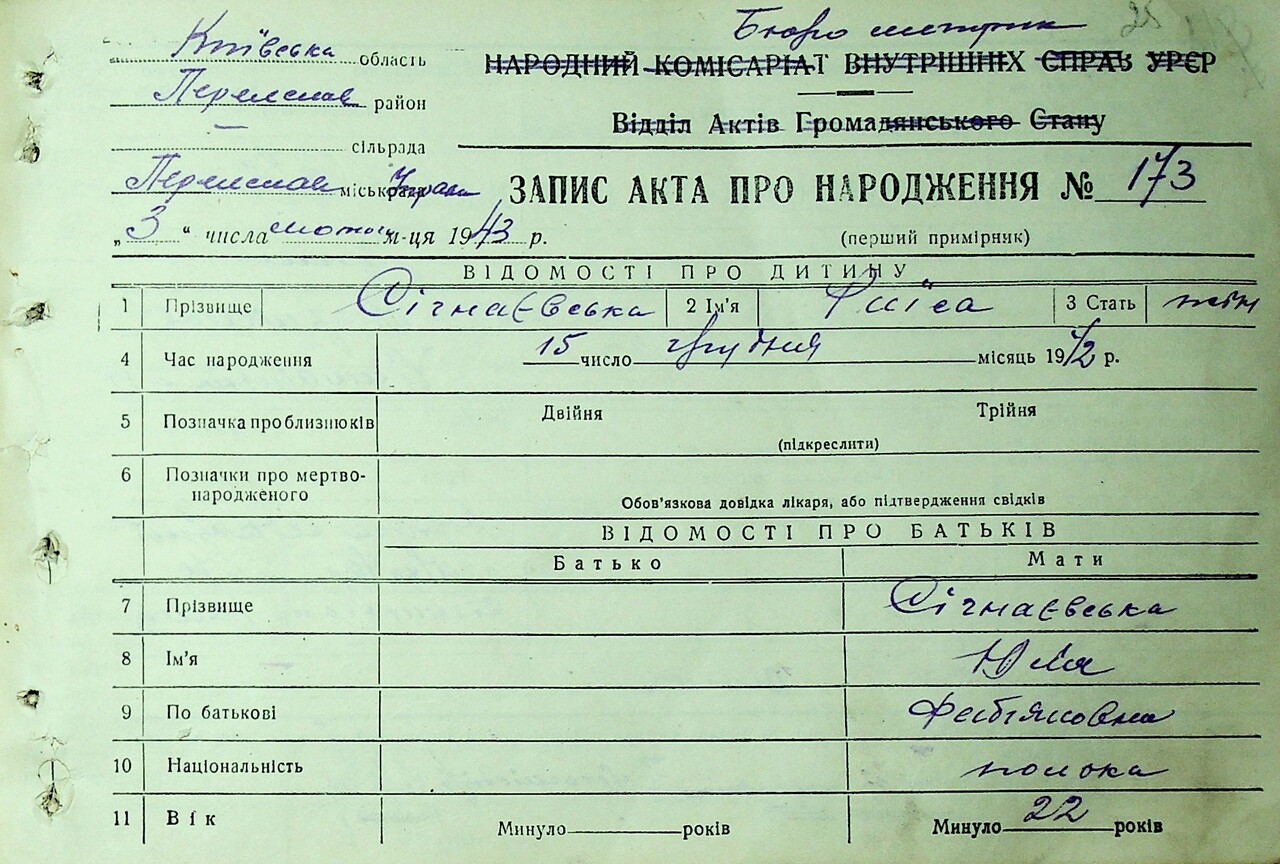 25
Бюро метрик
Київська область
НАРОДНИЙ КОМІСАРІАТ ВНУТРІШНІХ СПРАВ УРСР
Переяслав район
Відділ Актів Громадянського Стану
сільрада
Переяслав міськрада Управа
ЗАПИС АКТА ПРО НАРОДЖЕННЯ № 173
„3“ числа лютого м-ця 1943 р.
(перший примірник)
ВІДОМОСТІ ПРО ДИТИНУ
1 Прізвище Сігнаєвська 2 Ім'я Раїса 3 Стать жін
4 Час народження 15 число грудня місяць 1942 р.
5 Позначка про близнюків Двійня Трійня
(підкреслити)
6 Позначки про мертво-
народженого
Обов'язкова довідка лікаря, або підтвердження свідків
ВІДОМОСТІ ПРО БАТЬКІВ
Батько Мати
7 Прізвище Сігнаєвська
8 Ім'я Юлія
9 По батькові
10 Національність полька
11 Вік Минуло років Минуло 22 років